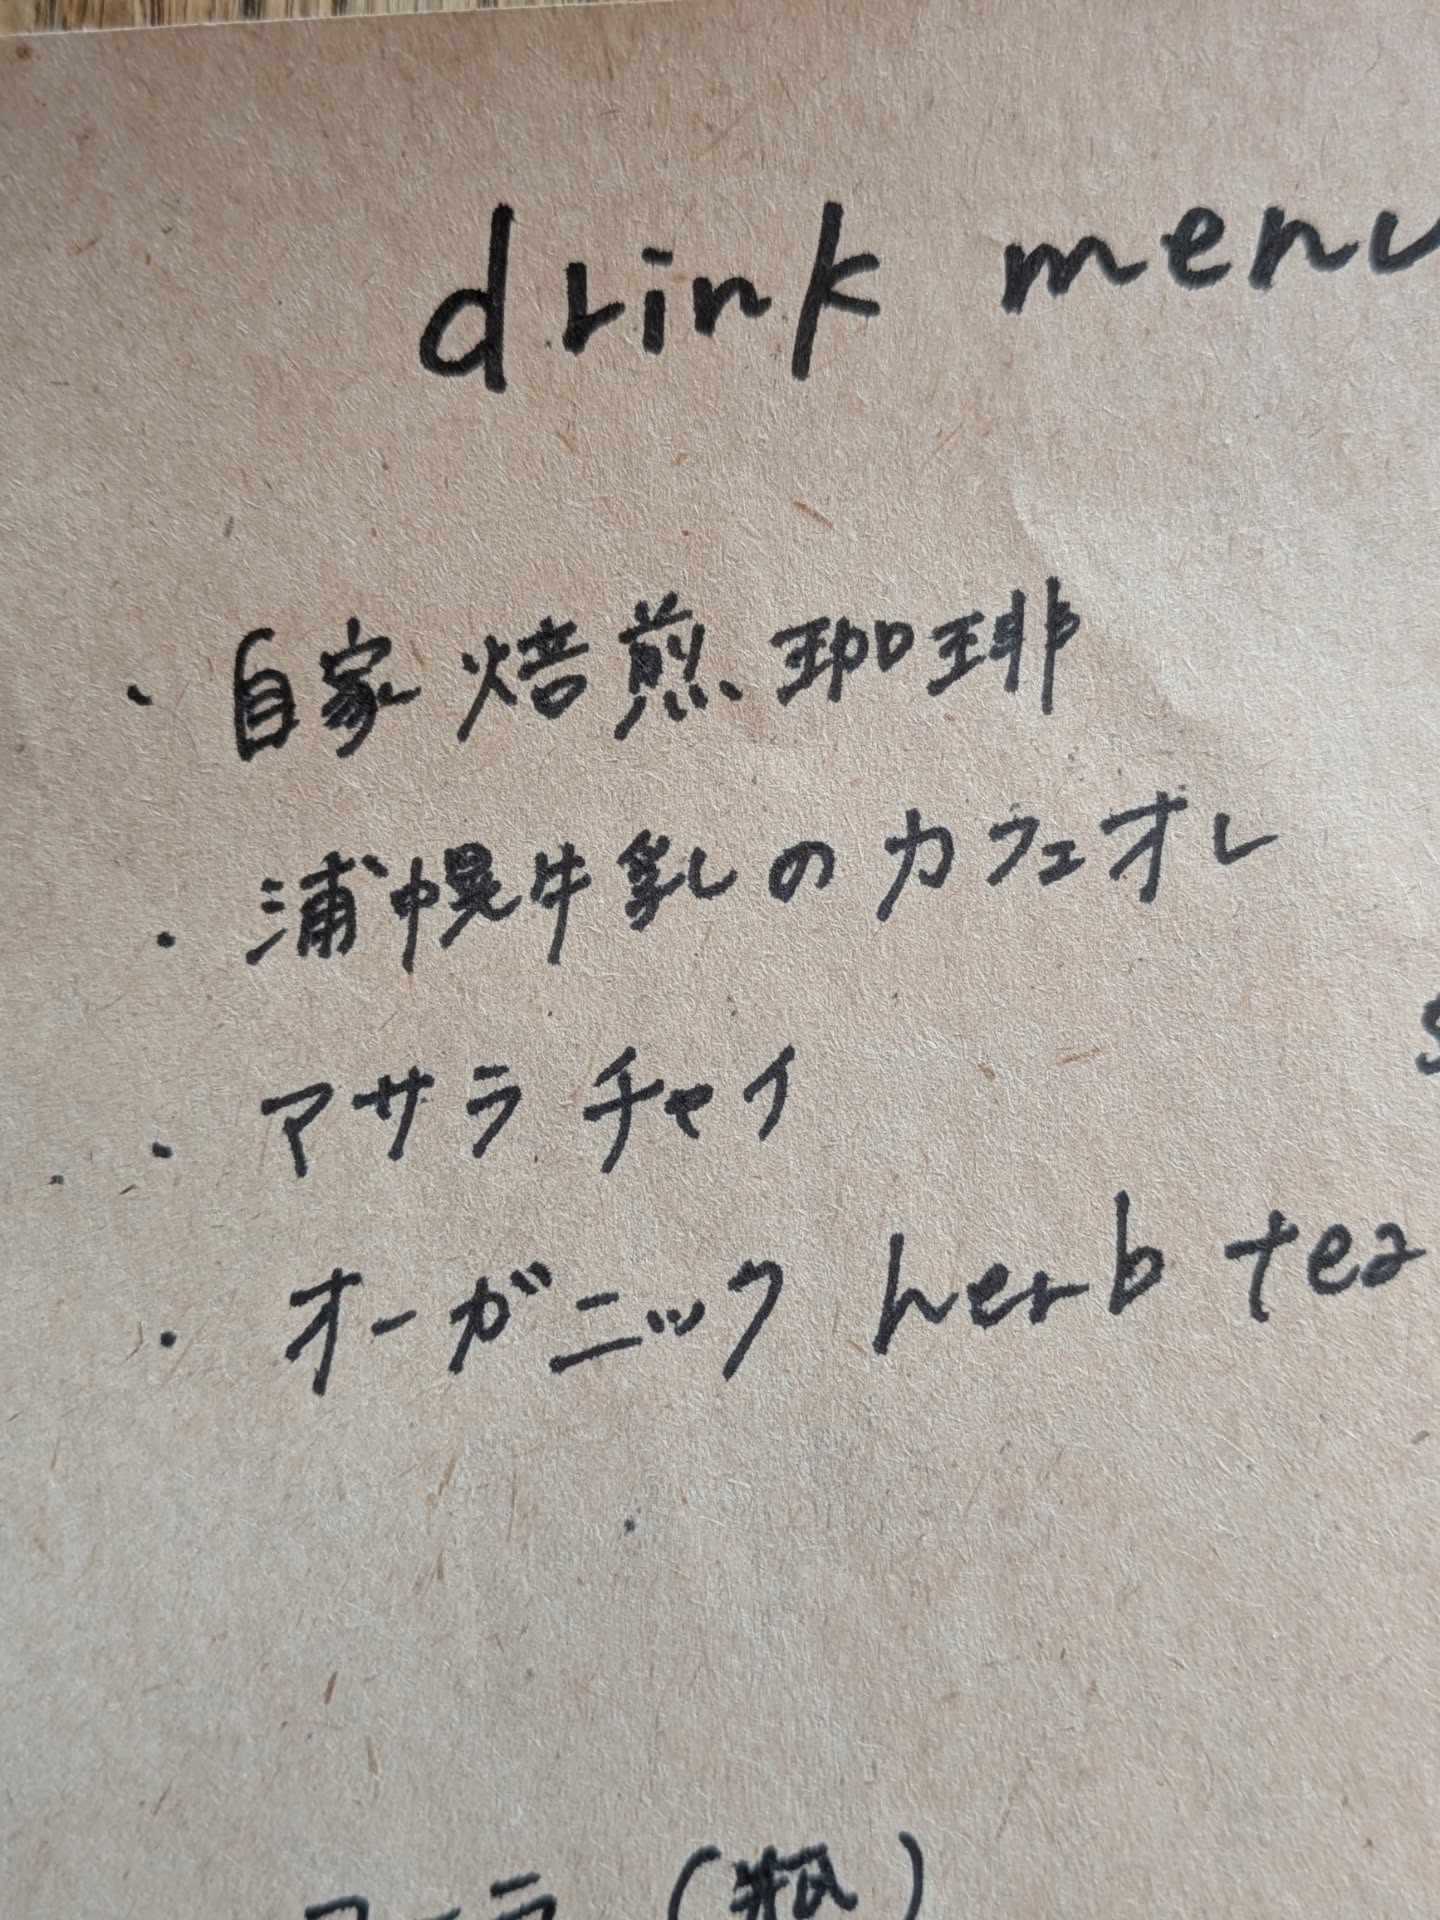 drink menu
・自家焙煎珈琲
・浦幌牛乳のカフェオレ
・マサラチャイ
・オーガニック herb tea
コーラ (瓶)